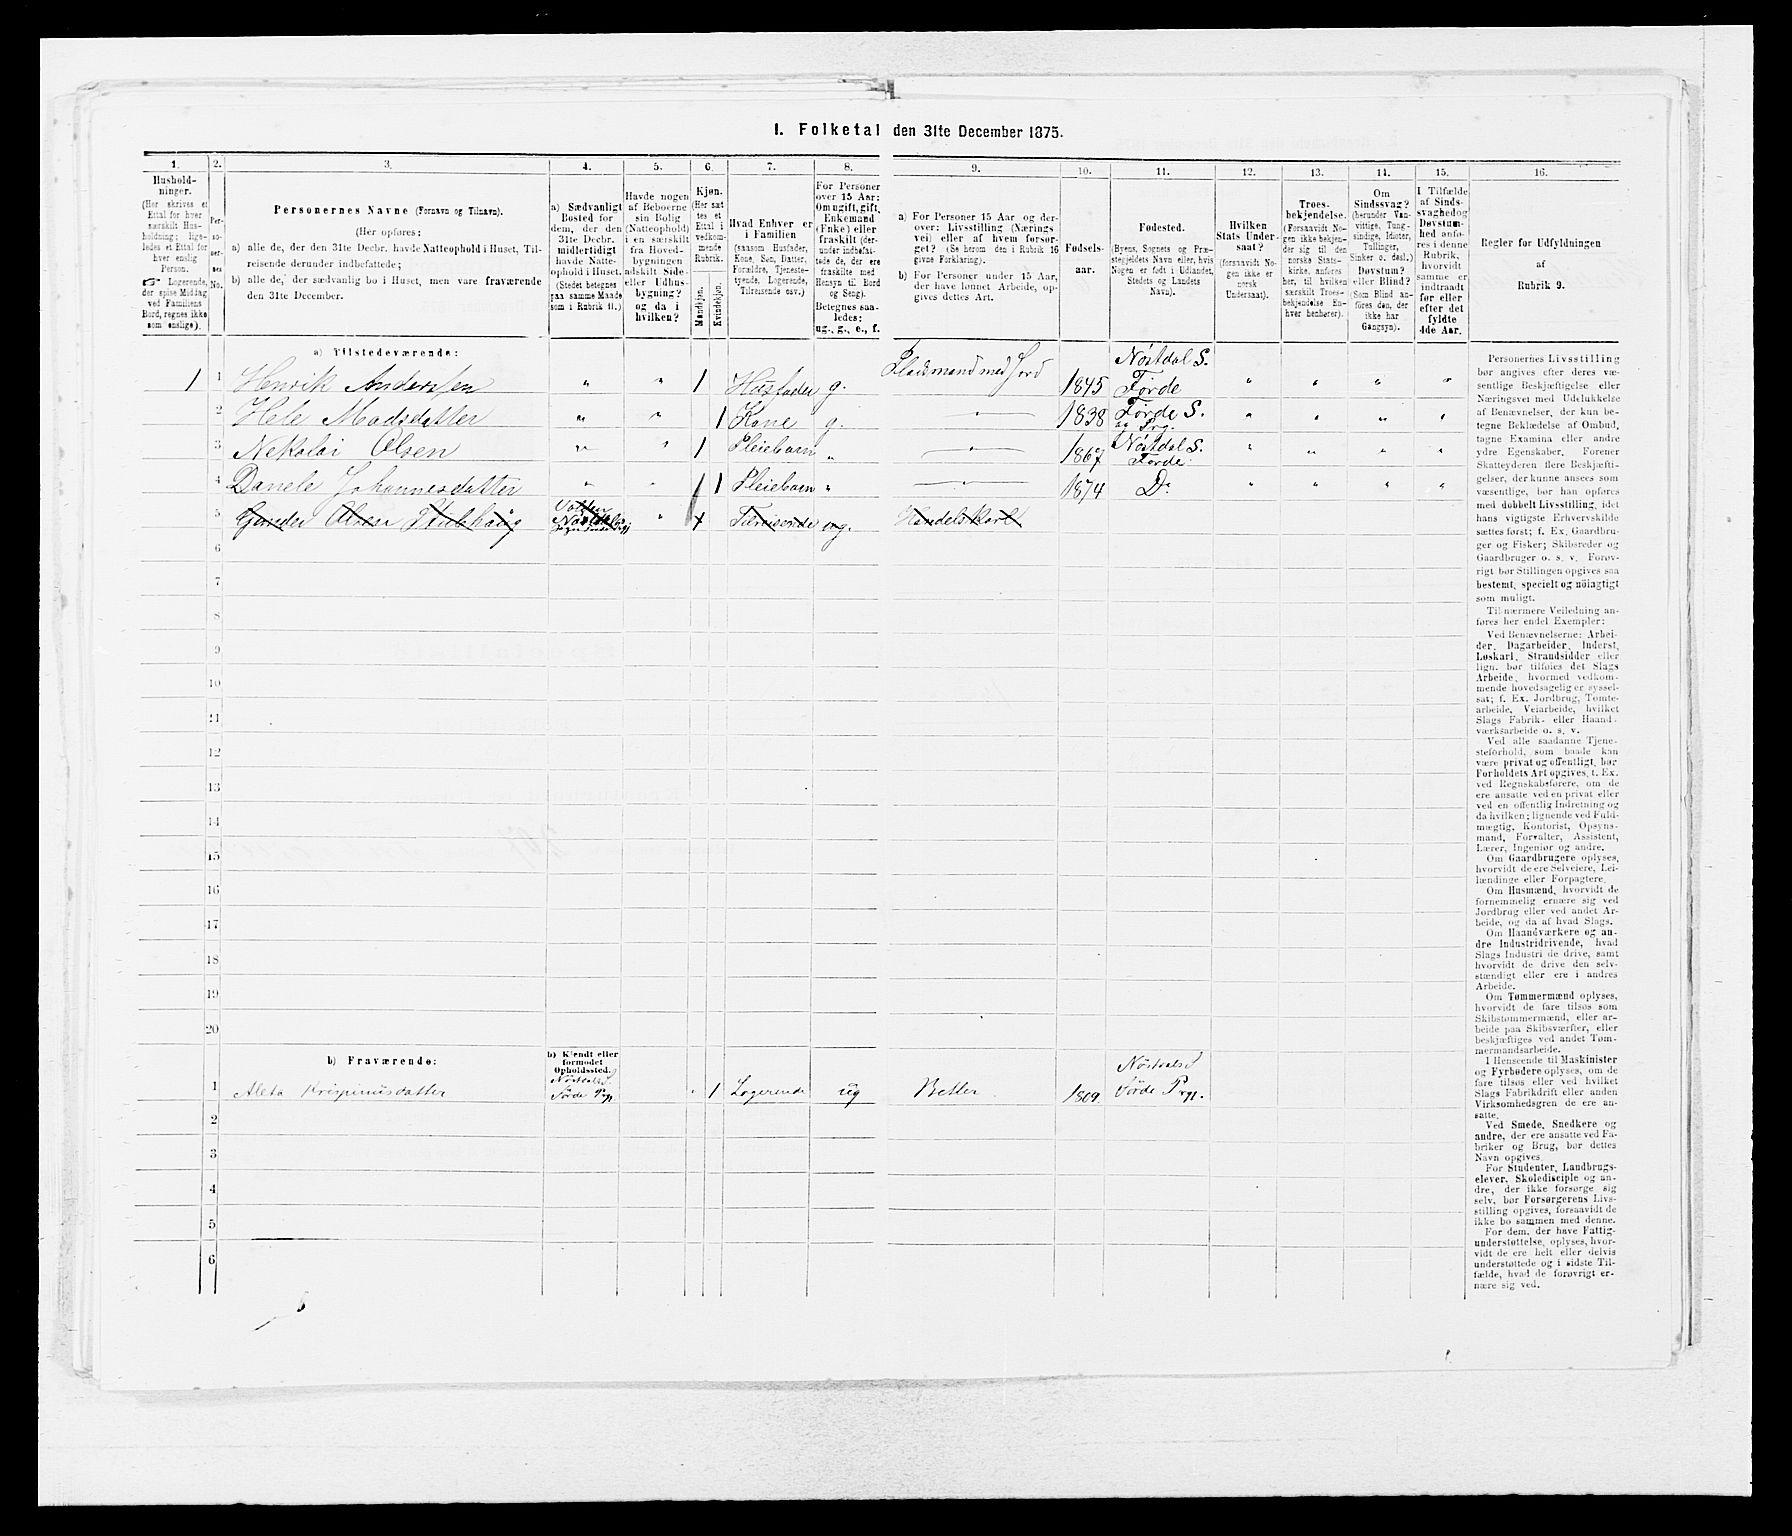 I. Folketal den 31te December 1875.
1. 2. 3. 4. 5. 6. 7. 8. 9. 10. 11. 12. 13. 14. 15. 16.
Hushold-
ninger.
(Her skrives et
Ettal for hver
særskilt Hus-
holdning; lige-
ledes et Ettal for
hver enslig
Person.
☞ Logerende,
der spise Middag
ved Familiens
Bord, regnes ikke
som enslige).
Per-
so-
ner-
nes
No.
Personernes Navne (Fornavn og Tilnavn).
(Her opføres:
a) alle de, der den 31te Decbr. havde Natteophold i Huset, Til-
reisende derunder indbefattede;
b) alle de, der sædvanlig bo i Huset, men vare fraværende
den 31te December.
a) Sædvanligt
Bosted for
dem, der den
31te Decbr.
midlertidigt
havde Natte-
ophold i Huset.
(Stedet betegnes
paa samme Maade
som i Rubrik 11.)
Havde nogen
af Beboerne
sin Bolig
(Natteophold)
i en særskilt
fra Hoved-
bygningen
adskilt Side-
eller Udhus-
bygning?
og da i
hvilken?
Kjøn.
(Her sæt
tes et
Ettal i
vedkom-
mende
Rubrik.
Mandkjøn.
Kvindekjøn.
Hvad Enhver er
i Familien
(saasom Husfader,
Kone, Søn, Datter,
Forældre, Tjeneste-
tyende, Logerende,
Tilreisende osv.)
For Personer
over 15 Aar:
Om ugift, gift,
Enkemand
(Enke) eller
fraskilt (der-
under indbefat-
tede de, der ere
fraskilte med
Hensyn til Bord
og Seng).
Betegnes saa-
ledes:
ug., g., e., f.
a) For Personer 15 Aar og der-
over: Livsstilling (Nærings
vei) eller af hvem forsør-
get? (Se herom den i Rubrik 16
givne Forklaring).
b) For Personer under 15 Aar,
der have lønnet Arbeide, op-
gives dettes Art.
Fødsels-
aar.
Fødested.
(Byens, Sognets og Præ-
stegjeldets Navn eller, hvis
Nogen er født i Udlandet,
Stedets og Landets
Navn).
Hvilken
Stats Under-
saat?
(forsaavidt No-
gen ikke er
norsk
Undersaat).
Troes-
bekjendelse.
(Forsaavidt No-
gen ikke bekjen-
der sig til den
norske Stats-
kirke, anføres
her, til hvilken
særskilt Troes-
bekjendelse En-
hver henhører).
Om
Sindssvag?
(herunder Van-
vittige, Tung-
sindige, Idioter,
Tullinger,
Sinker o. desl.)
Døvstum?
eller Blind?
(Som Blind an-
føres den, der
ikke har
Gangsyn).
I Tilfælde
af Sinds-
svaghed og
Døvstum-
hed anfø-
res i denne
Rubrik,
hvorvidt
samme er
indtraadt
før eller
efter det
fyldte
4de Aar.
Regler for Udfyldningen
af
Rubrik 9.
a) Tilstedeværende:
1 1 Henrik Andersen " " 1 Husfader g. Pladsmand med Jord 1845 Nóstdal S. Førde " " " "
2 Hele Madsdatter " " 1 Kone g. " 1838 Førde S. og Prg. " " " "
3 Nekolai Olsen " " 1 Pleiebarn " " 1867 Nóstdal S. Førde " " " "
4 Danele Johannesdatter " " 1 Pleiebarn " " 1874 Do " " " "
5 Olsen " Tilreisende ug. Handelskarl
6
7
8
9
10
11
12
13
14
15
16
17
18
19
20
b) Fraværende:
b) Kjendt eller
formodet
Opholdssted.
1 Aleta Krispinusdatter Nóstdals S. Førde Prgj " 1 Logerende ug Betler 1809. Nóstdals S Førde Prgj.
2
3
4
5
6
Personernes Livsstilling
bør angives efter deres væ-
sentlige Beskjæftigelse eller
Næringsvei med Udelukkelse
af Benævnelser, der kun be-
tegne Beklædelse af Ombud,
tagne Examina eller andre
ydre Egenskaber. Forener
Skatteyderen flere Beskjæfti-
gelser, der kunne ansees som
væsentlige, bør han opføres
med dobbelt Livsstilling, idet
hans vigtigste Erhvervskilde
sættes først; f. Ex. Gaardbru-
ger og Fisker; Skibsreder og
Gaardbruger o. s. v. Forøv-
rigt bør Stillingen opgives saa
bestemt, specielt og nøiagtigt
som muligt.
Til nærmere Veiledning an-
føres her endel Exempler:
Ved Benævnelserne: Arbei-
der, Dagarbeider, Inderst,
Løskarl, Strandsidder eller
lign. bør tilføies det Slags
Arbeide, hvormed vedkom-
mende hovedsagelig er syssel-
sat; f. Ex. Jordbrug, Tomte-
arbeide, Veiarbeide, hvilket
Slags Fabrik- eller Haand-
værksarbeide o. s. v.
Ved alle saadanne Tjene-
steforhold, som baade kan
være privat og offentligt, bør
Forholdets Art opgives, t. Ex.
ved Regnskabsførere, om de
ere ansatte ved en privat eller
ved en offentlig Indretning og
da hvilken; lignende ved Fuld-
mægtig, Kontorist, Opsyns-
mand, Forvalter, Assistent,
Lærer, Ingeniør og andre.
Om Gaardbrugere oplyses,
hvorvidt de ere Selveiere, Lei-
lændinge eller Forpagtere.
Om Husmænd, hvorvidt de
fornemmelig ernære sig ved
Jordbrug eller ved andet Ar-
beide, og da af hvad Slags.
Om Haandværkere og an-
dre Industridrivende, hvad
Slags Industri de drive, samt
hvorvidt de drive den selv-
stændigt eller ere i andres
Arbeide.
Om Tømmermænd oplyses,
hvorvidt de fare tilsøs som
Skibstømmermænd, eller ar-
beide paa Skibsværfter, eller
beskjæftiges ved andet Tøm-
mermandsarbeide.
I Henseende til Maskinister
og Fyrbødere oplyses, om de
fare tilsøs eller ved hvilket
Slags Fabrikdrift eller anden
Virksomhedsgren de ere an-
satte.
Ved Smede, Snedkere og
andre, der ere ansatte ved Fa-
briker og Brug, bør dettes
Navn opgives.
For Studenter, Landbrugs-
elever, Skoledisciple og an-
dre, der ikke forsørge sig
selv, bør Forsørgerens Livs-
stilling opgives, forsaavidt de
ikke bo sammen med denne.
For dem, der have Fattig-
understøttelse, oplyses, hvor-
vidt de ere helt eller delvis
understøttede og i sidste Til-
fælde, hvad de forøvrigt er-
nære sig ved.